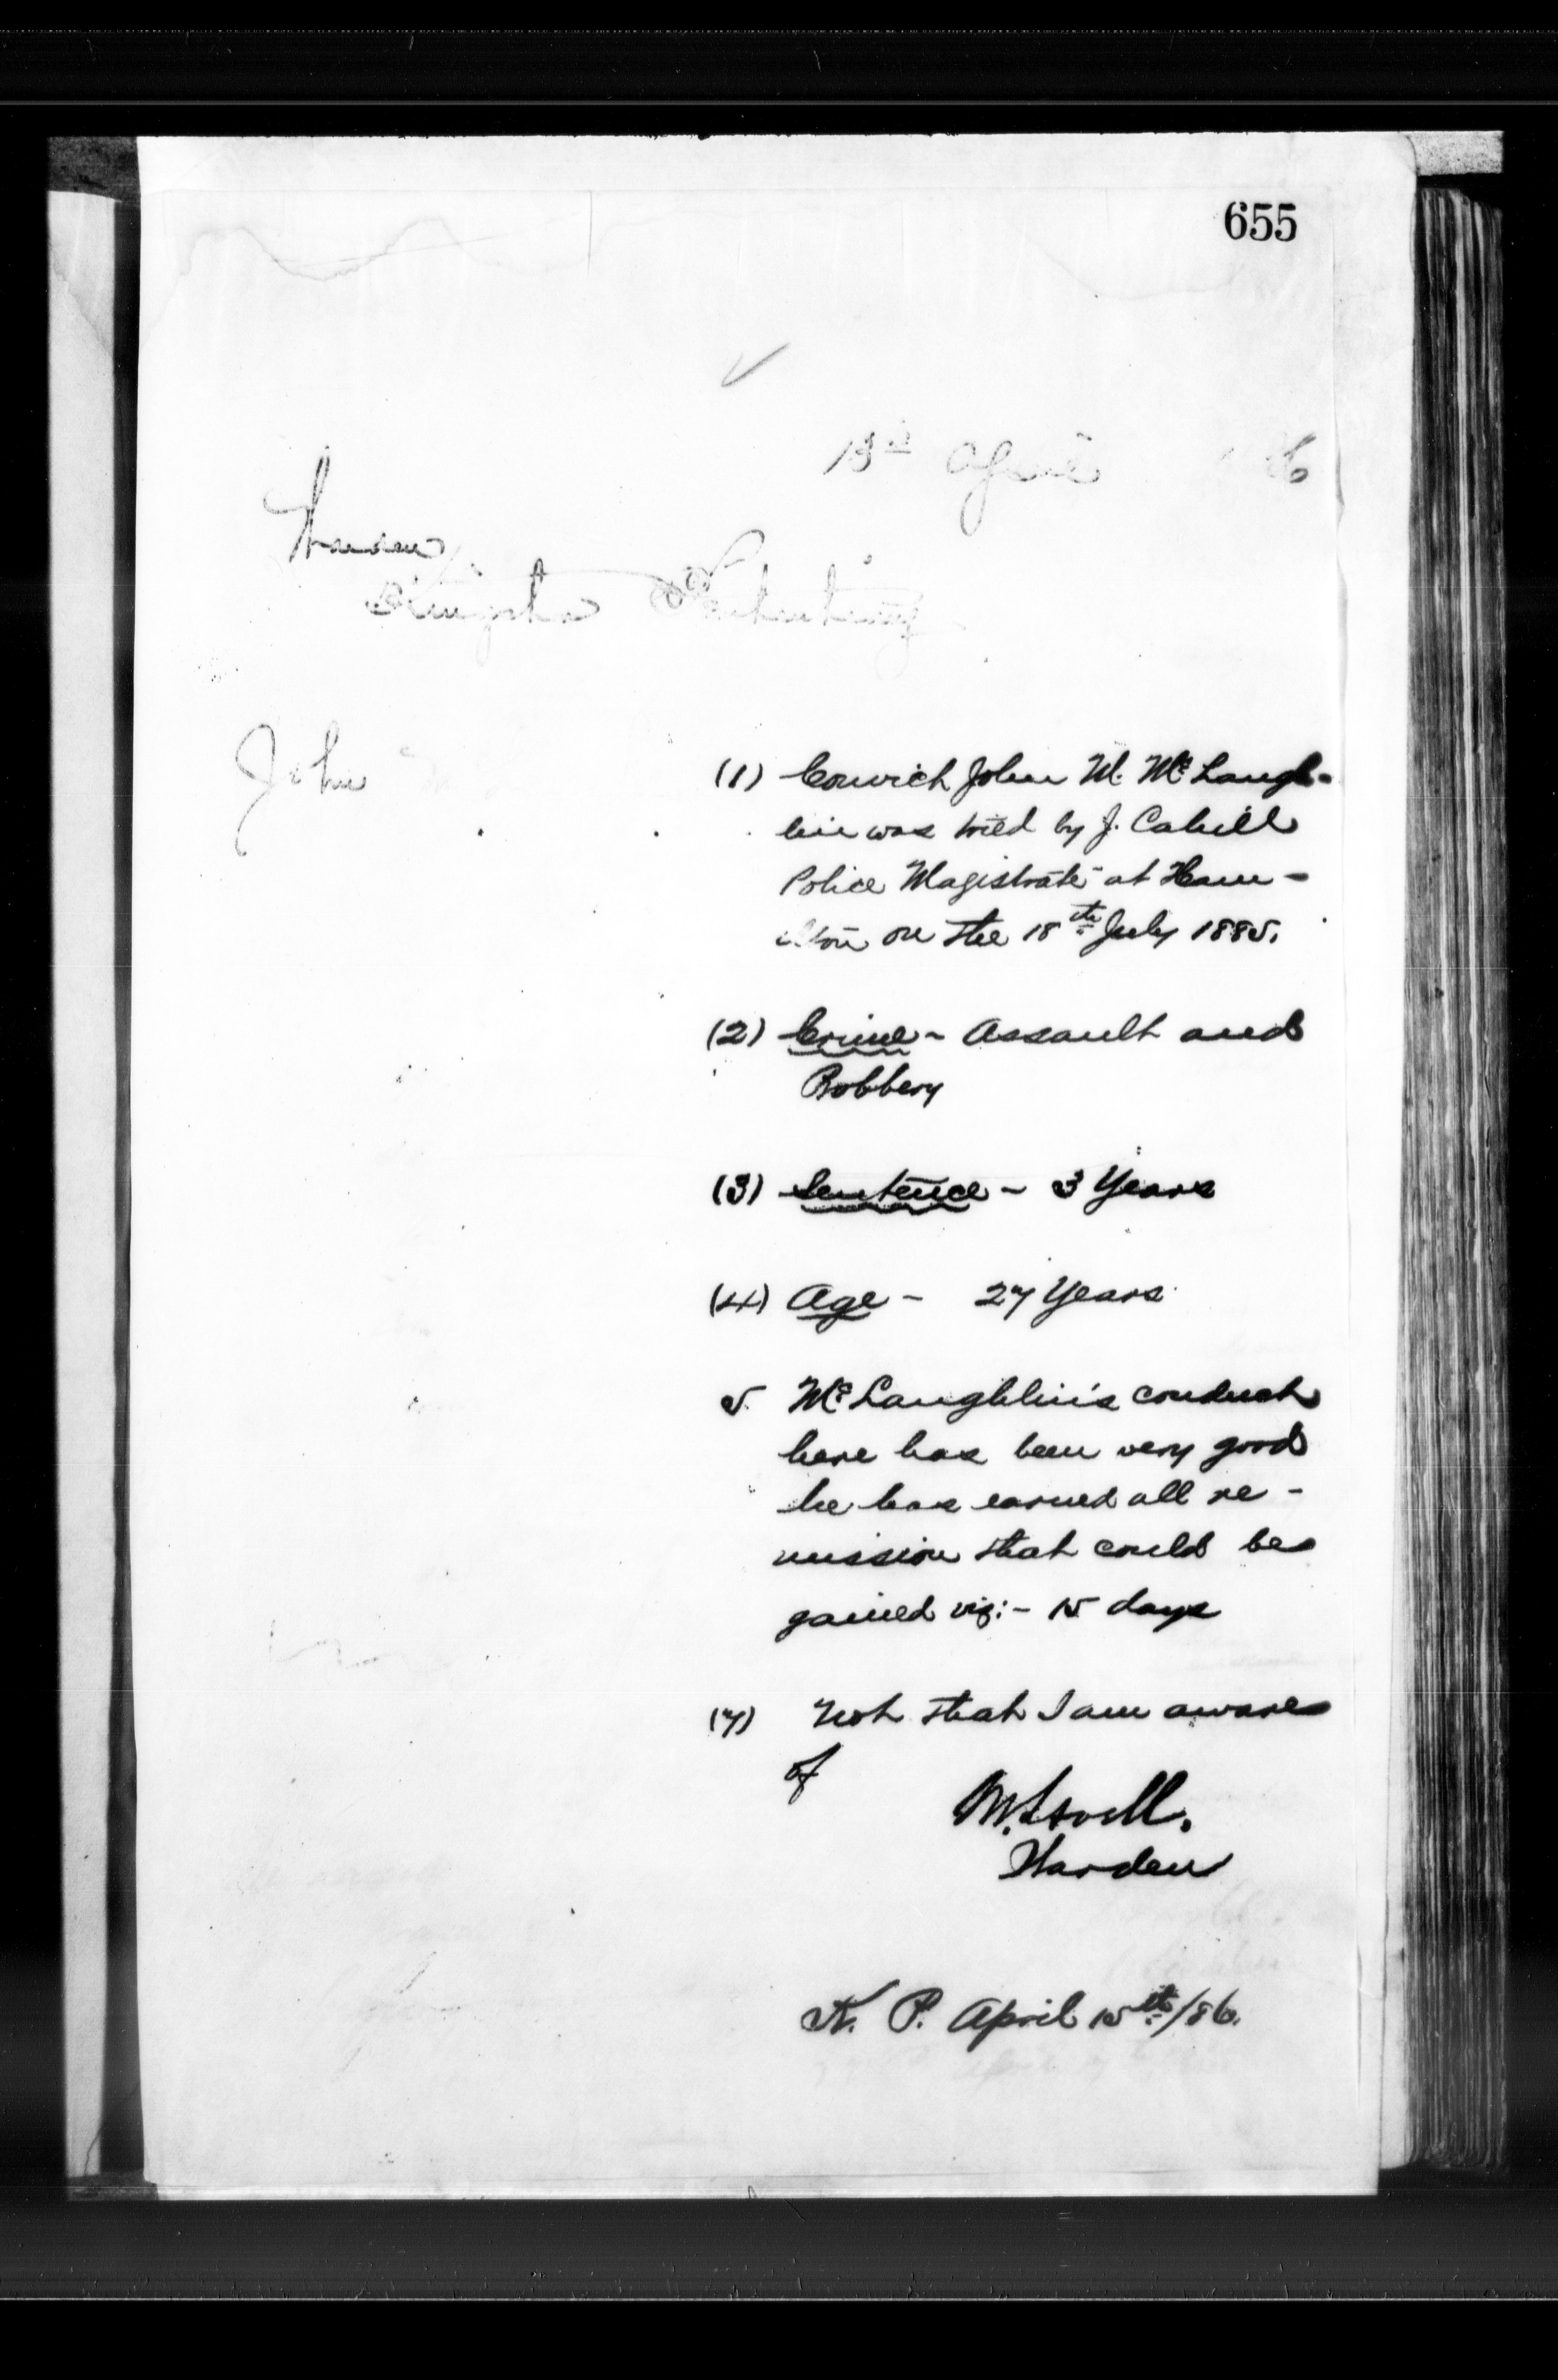 655
13th April 86
Warden
Kingston Penitentiary
John
(1) Convict John W. McLaugh-
lin was tried by J. Cahill
Police Magistrate at Ham-
ilton on the 18th July 1885.
(2) Crime - Assault and
Robbery
(3) Sentence - 3 Years
(4) Age - 27 Years
5. McLaughlin's conduct
here has been very good
he has earned all re-
mission that could be
gained viz:- 15 days
(7) Not that I am aware
of
M. Lavell.
Warden
K. P. April 15th/86.